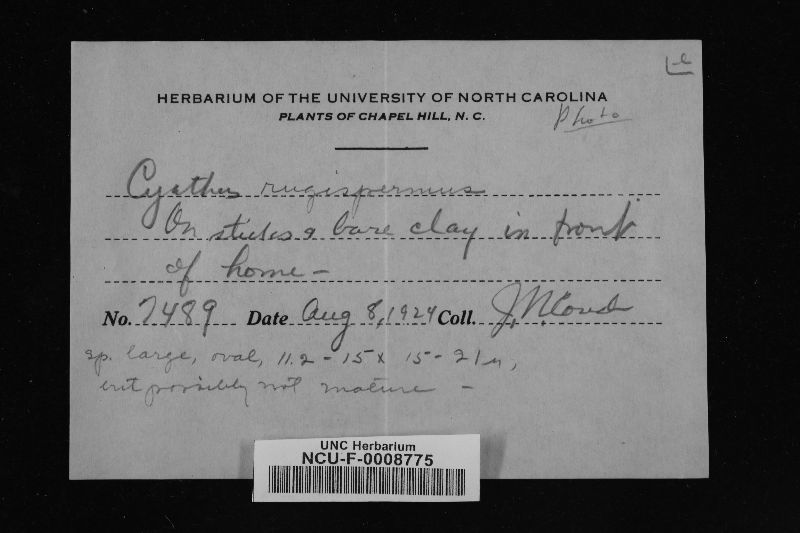 HERBARIUM OF THE UNIVERSITY OF NORTH CAROLINA
PLANTS OF CHAPEL HILL, N. C.
Photo
Cyathus rugispermus
On sticks & bare clay in front
of home —
No. 7489 Date Aug 8, 1924 Coll. J.N. Couch
sp. large, oval, 11.2 - 15 x 15 - 21 µ,
but possibly not mature —
UNC Herbarium
NCU-F-0008775